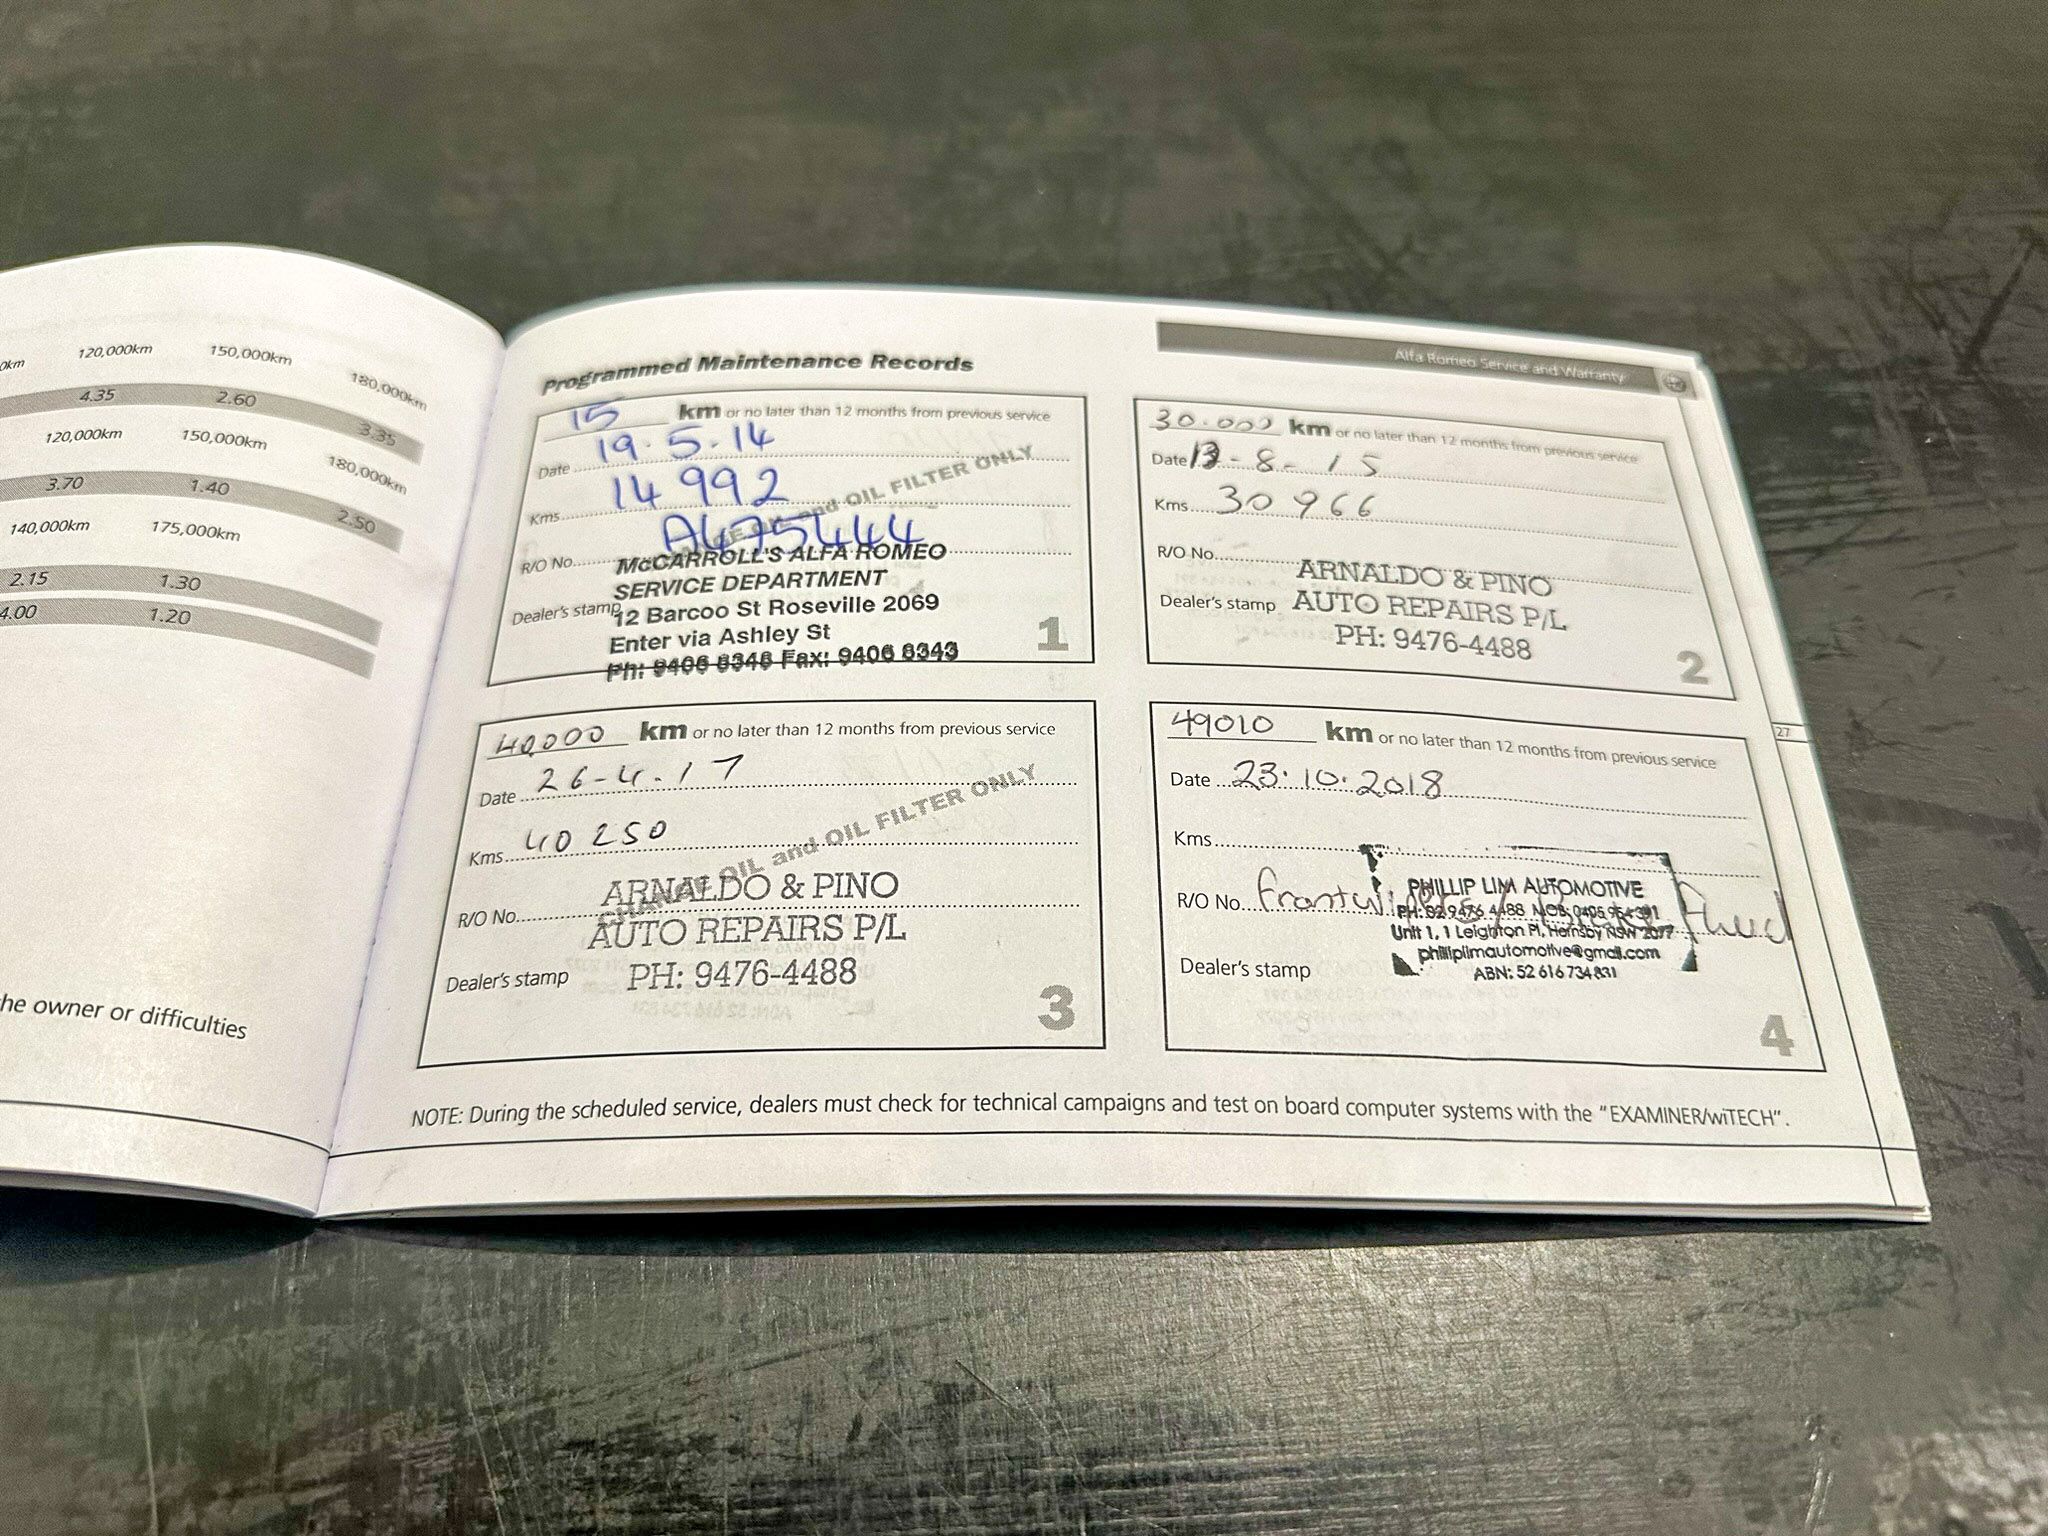 0km 120,000km 150,000km 180,000km
4.35 2.60 3.35
120,000km 150,000km 180,000km
3.70 1.40 2.50
140,000km 175,000km
2.15 1.30
4.00 1.20
he owner or difficulties
Alfa Romeo Service and Warranty
Programmed Maintenance Records
15 km or no later than 12 months from previous service
Date 19.5.14
Kms 14 992
CHANGE OIL and OIL FILTER ONLY
R/O No. A475444
Dealer's stamp
McCARROLL'S ALFA ROMEO
SERVICE DEPARTMENT
12 Barcoo St Roseville 2069
Enter via Ashley St
Ph: 9406 8348 Fax: 9406 8343
1
30.000 km or no later than 12 months from previous service
Date 13-8-15
Kms 30 966
R/O No.
Dealer's stamp
ARNALDO & PINO
AUTO REPAIRS P/L
PH: 9476-4488
2
40,000 km or no later than 12 months from previous service
Date 26-4.17
Kms 40 250
CHANGE OIL and OIL FILTER ONLY
R/O No.
Dealer's stamp
ARNALDO & PINO
AUTO REPAIRS P/L
PH: 9476-4488
3
49010 km or no later than 12 months from previous service
Date 23.10.2018
Kms
R/O No. Front Fluid
Dealer's stamp
PHILLIP LIM AUTOMOTIVE
PH: 02 9476 4488 MOB: 0405
Unit 1, 1 Leighton Pl, Hornsby NSW 2077
philliplimautomotive@gmail.com
ABN: 52 616 734 831
4
27
NOTE: During the scheduled service, dealers must check for technical campaigns and test on board computer systems with the "EXAMINER/wiTECH".